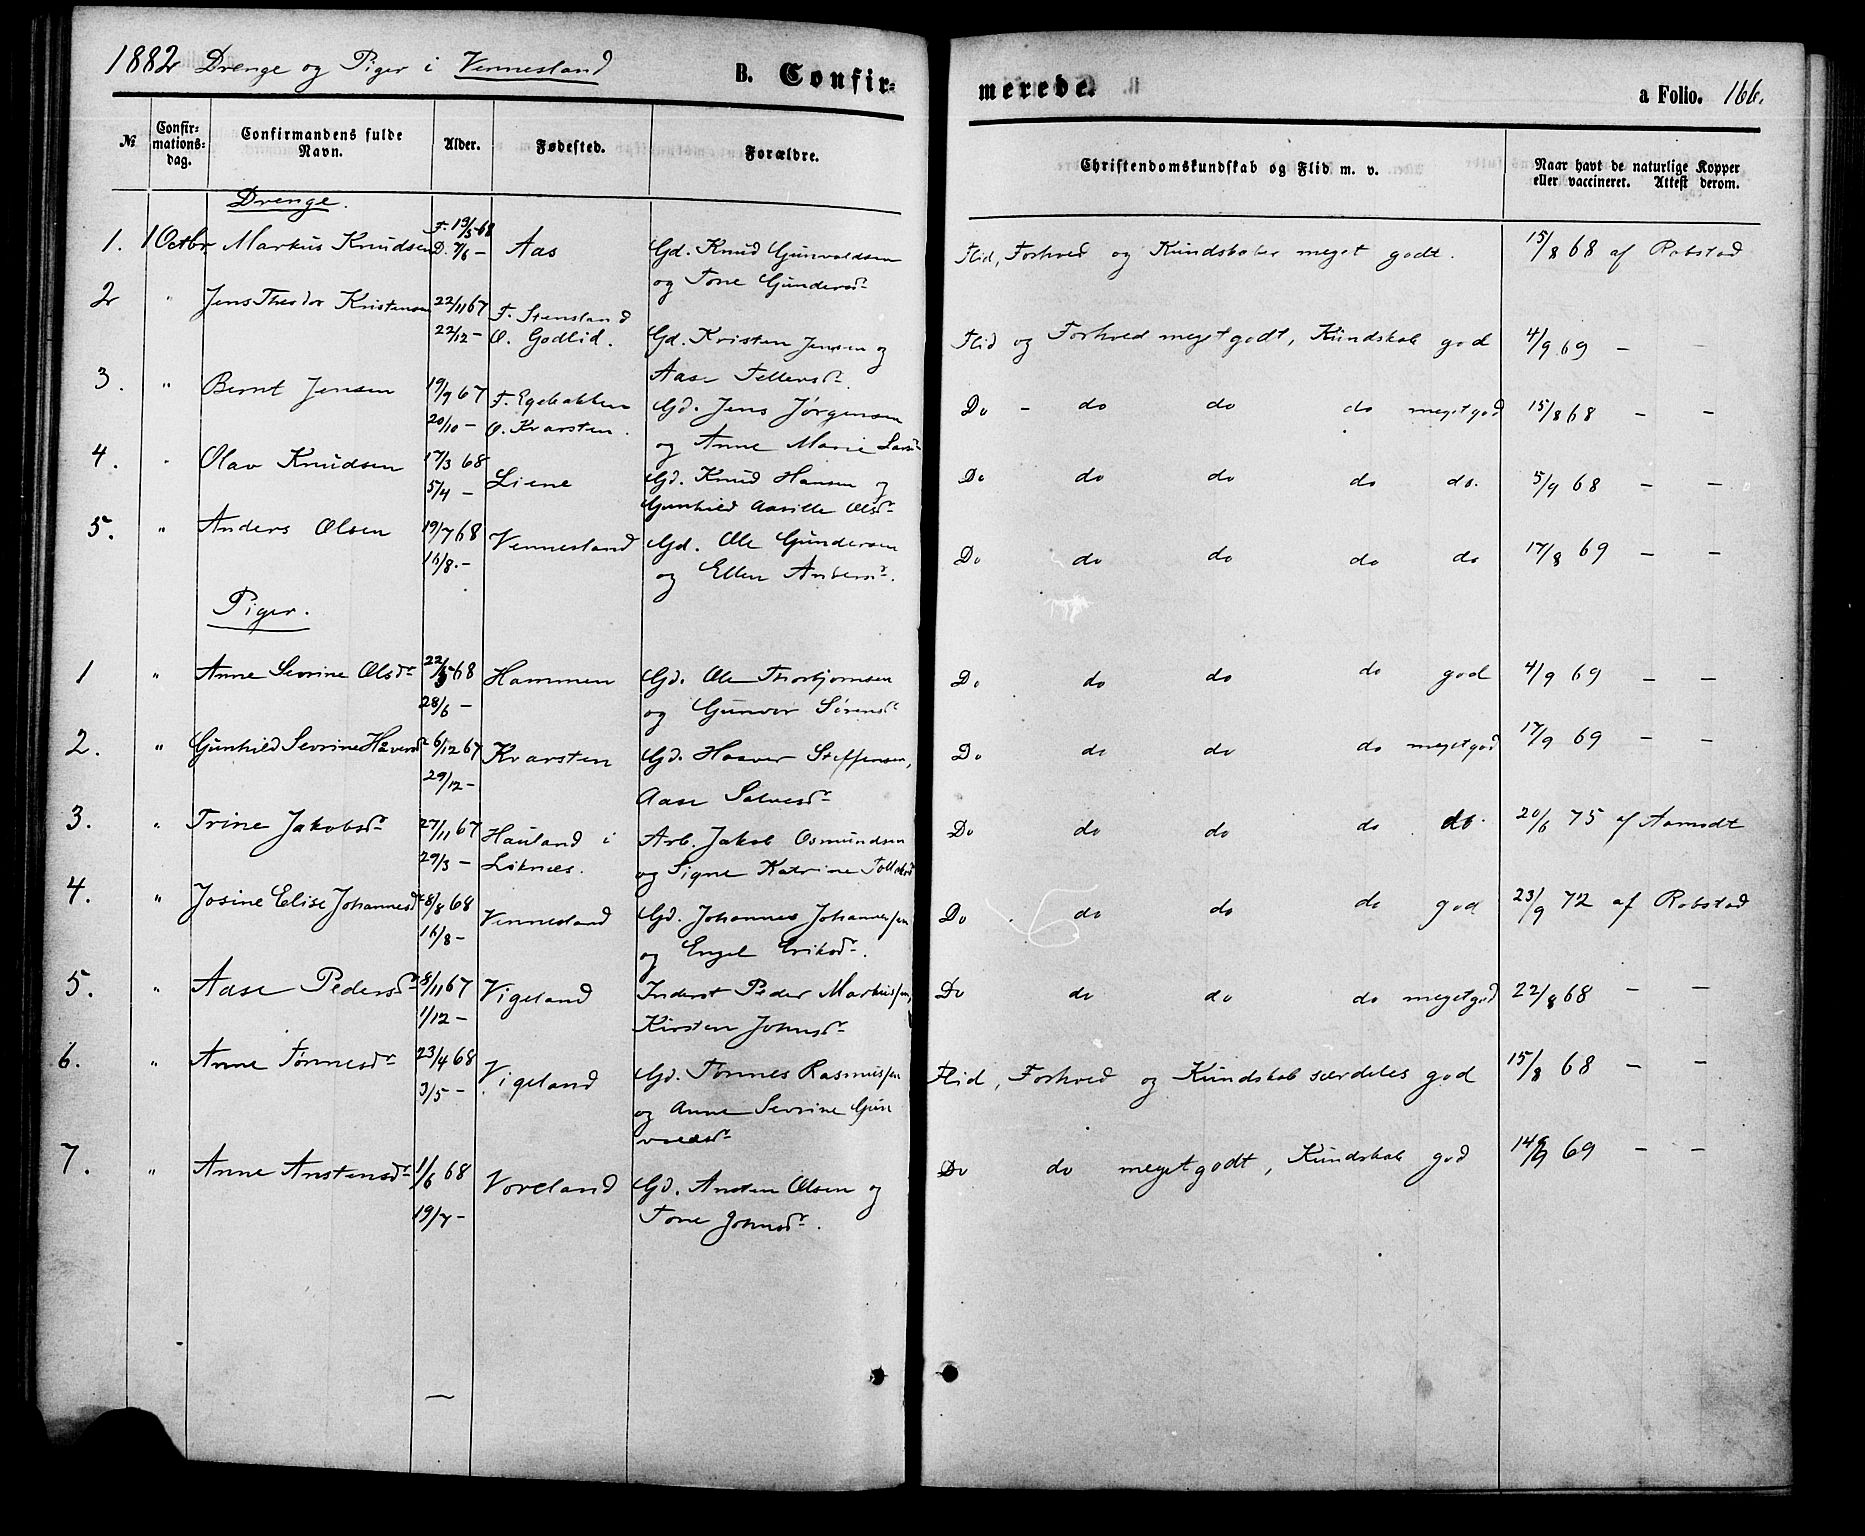 1882 Drenge og Piger i Vennesland
B. Confir=
merede.
a Folio. 166.
№
Confir=
mations=
dag.
Confirmandens fulde
Navn.
Alder.
Fødested.
Forældre.
Christendomskundskab og Flid m. v.
Naar havt de naturlige Kopper
eller vaccineret. Attest derom.
Drenge.
1. 1 Octbr. Markus Knudsen F. 19/5 68 Aas Gd. Knud Gunvaldsen Flid, Forhold og Kundskaber meget godt. 15/8 68 af Robstad
D. 7/6 – og Tone Gundersdr
2 " Jens Theodor Kristensen 22/11 67 F. Stensland
22/12 – O. Godlid. Gd. Kristen Jensen og Flid og Forhold meget godt, Kundskab god 4/9 69 –
Aase Tellefsdr.
3. " Bernt Jensen 19/9 67 F. Egebakken Gd. Jens Jørgensen Do – do do do meget god 15/8 68 – –
20/10 – O. Kvarsten. og Anne Marie Larsdr
4. " Olav Knudsen 17/3 68 Liene Gd. Knud Hansen og Do do do do do. 5/9 68 – –
5/4 – Gunhild Aasille Olsdr
5. " Anders Olsen 19/7 68 Vennesland Gd. Ole Gundersen Do do do do do 17/8 69 – –
16/8. – og Ellen Andersdr.
Piger.
1 " Anne Sevrine Olsdr 22/5 68 Hammen Gd. Ole Thorbjørnsen Do do do do god 4/9 69 – –
28/6 – og Gunvor Sørensdr
2. " Gunhild Sevrine Haaversdr 6/12 67 Kvarsten Gd. Haaver Steffensen, Do do do do meget god 17/9 69 – –
29/12 – Aase Salvesdr
3. " Trine Jakobsdr 27/11 67 Hauland i Arb. Jakob Osmundsen Do do do do do. 20/6 75 af Aamodt
29/3 – Liknæs. og Signe Katrine Tollaksdr
4. " Josine Elise Johannesdr 8/8 68 Vennesland Gd. Johannes Johannessen Do do do do god 23/9 72 af Robstad
16/8 – og Engel Eriksdr.
5. " Aase Pedersdr 8/11 67 Vigeland Inderst Peder Markussen, Do do do do meget god 22/8 68 – –
1/12 – Kirsten Johnsdr
6. " Anne Tønnesdr 23/4 68 Vigeland Gd. Tønnes Rasmussen Flid, Forhold og Kundskab særdeles god 15/8 68 – –
3/5 – og Anne Sevrine Gun
valdsdr
7. " Anne Anstensdr 1/6 68 Voreland Gd. Ansten Olsen og Do do meget godt, Kundskab god 14/9 69 – –
19/7 – Tone Johnsdr.